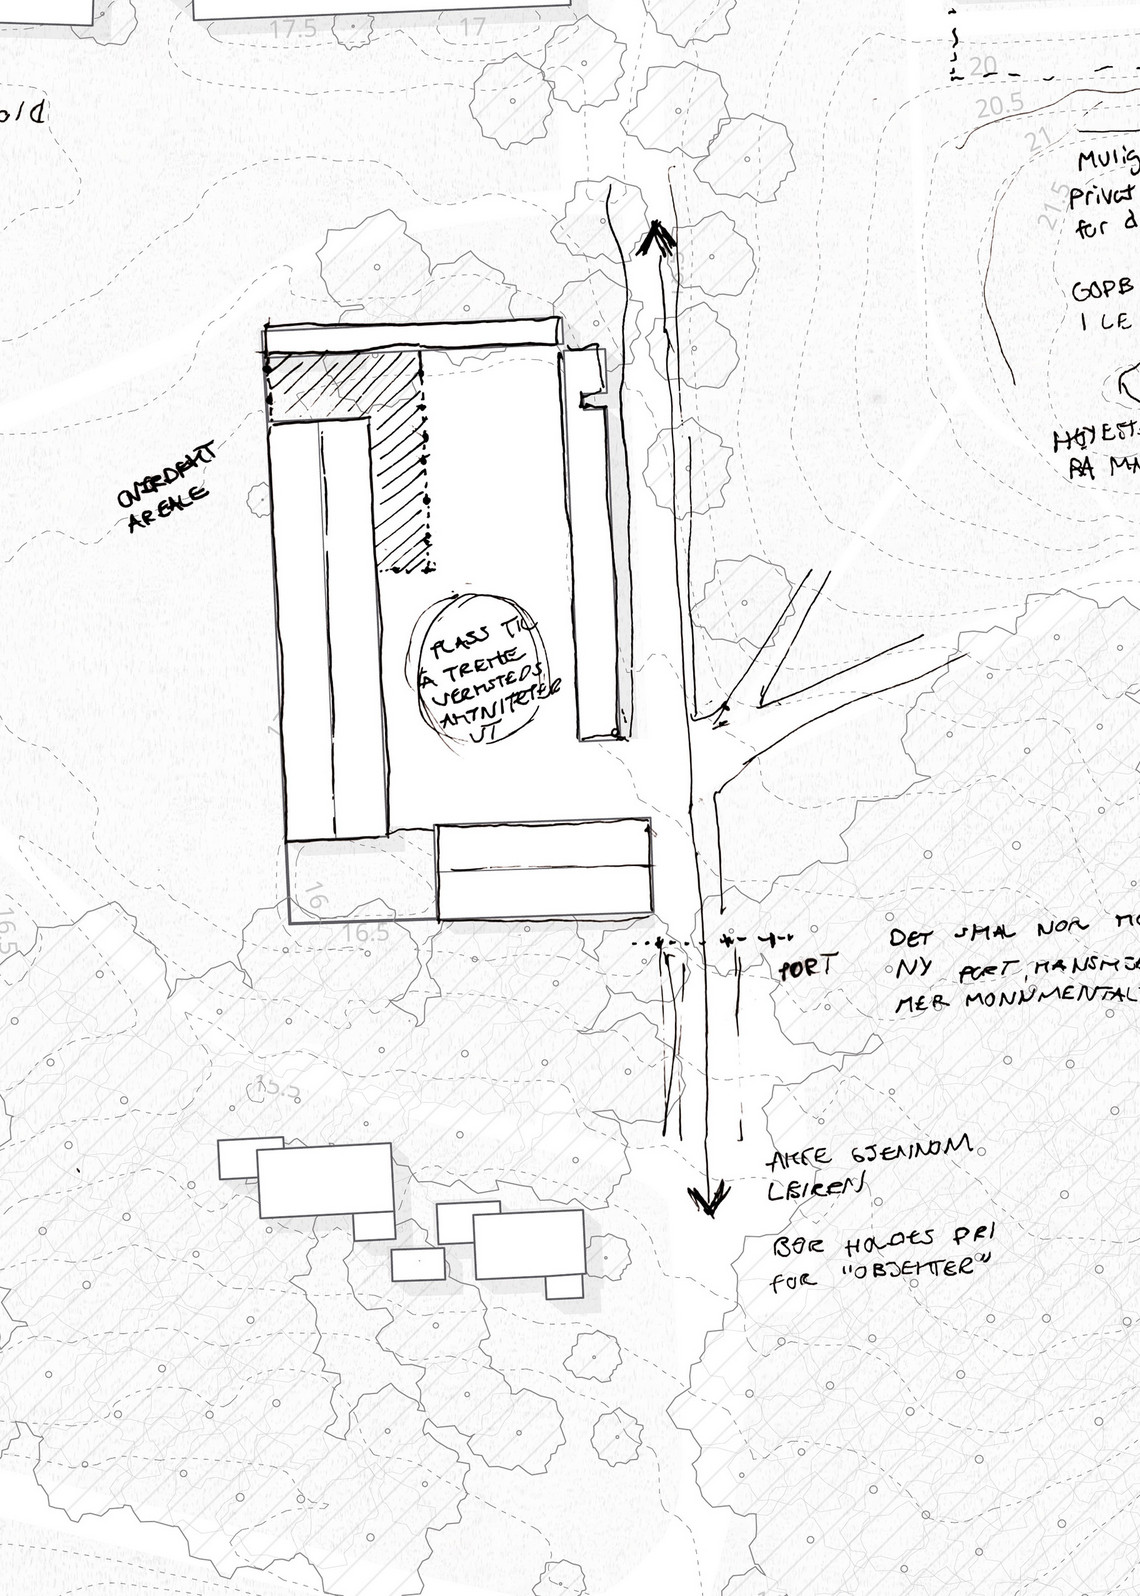 17.5
17
20
20.5
21
21.5
Mulig
Privat
for d
I LE
OVERDEKT
AREALE
PLASS TIL
Å TREKKE
VERKSTEDS
AKTIVITETER
UT
16
16.5
16.5
PORT
DET SKAL NOK
NY PORT, KANSKJE
MER MONNMENTAL
15.5
AKSE GJENNOM
LEIREN
BØR HOLDES FRI
FOR "OBJEKTER"